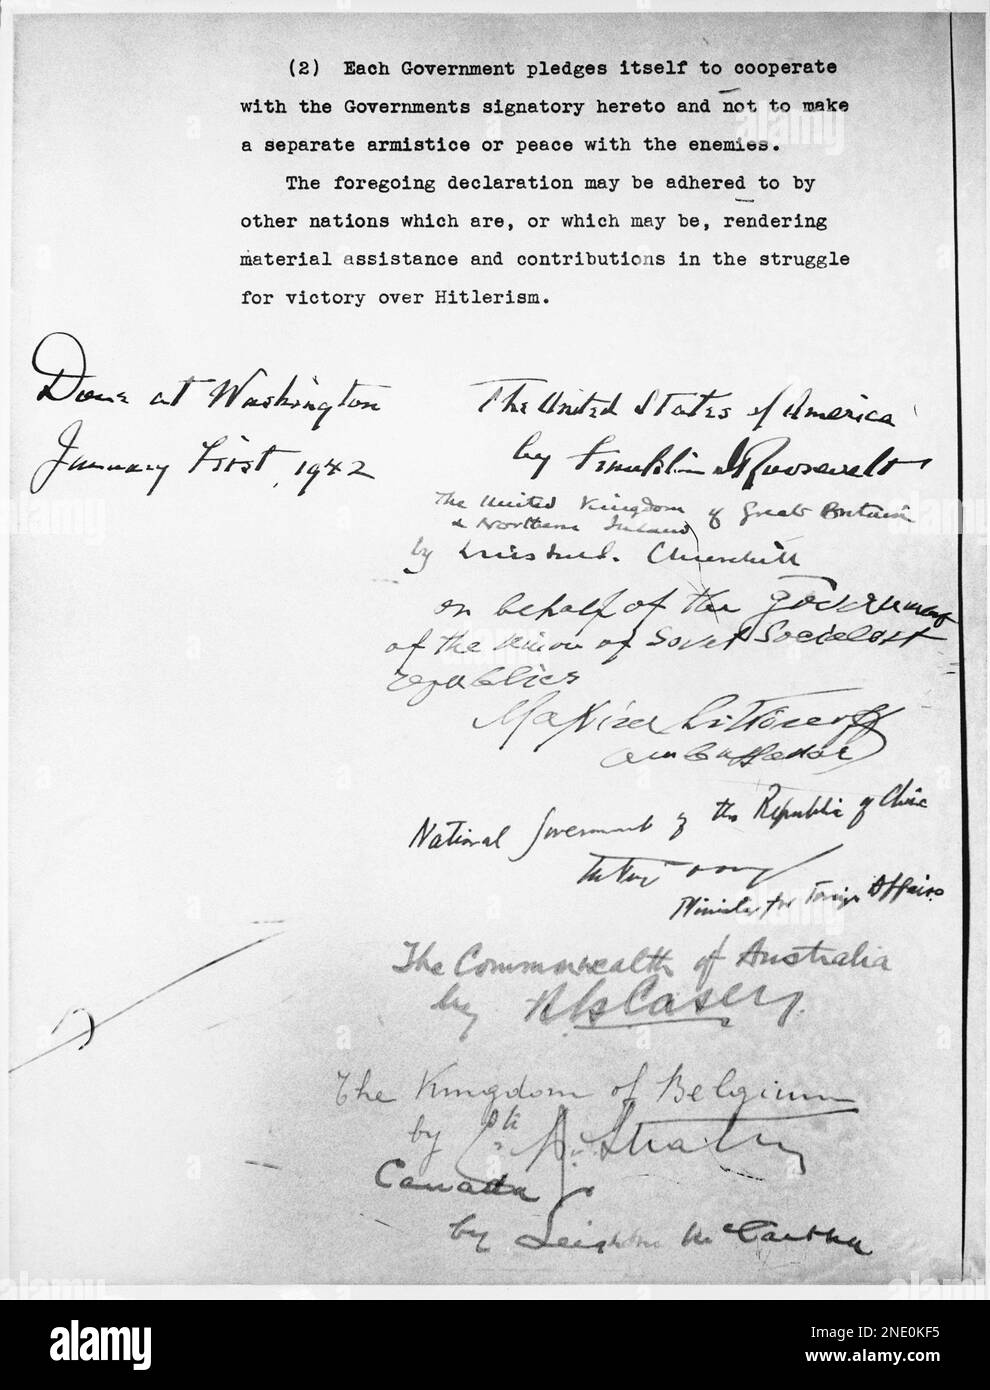 (2) Each Government pledges itself to cooperate
with the Governments signatory hereto and not to make
a separate armistice or peace with the enemies.
The foregoing declaration may be adhered to by
other nations which are, or which may be, rendering
material assistance and contributions in the struggle
for victory over Hitlerism.
Done at Washington
January First, 1942
The United States of America
by Franklin D Roosevelt
The United Kingdom of Great Britain
& Northern Ireland
by Winston S. Churchill
on behalf of the Government
of the Union of Soviet Socialist
Republics
Maxim Litvinoff
Ambassador
National Government of the Republic of China
Minister for Foreign Affairs.
The Commonwealth of Australia
by R. G. Casey.
The Kingdom of Belgium
by Straten
Canada
by Leighton McCarthy
alamy
Image ID: 2NE0KF5
www.alamy.com